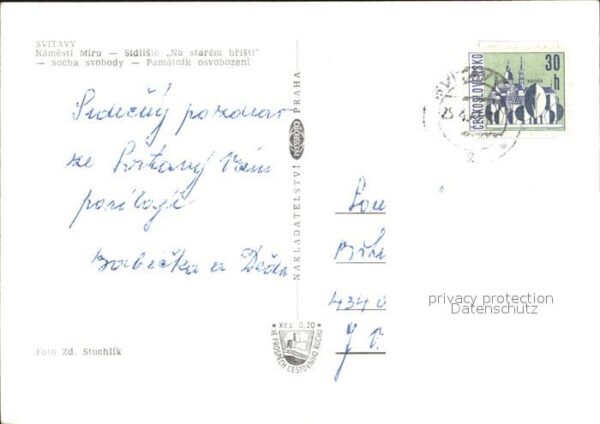 SVITAVY
Náměstí Míru — Sídliště „Na starém hřišti"
— Socha svobody — Památník osvobození
Srdečný pozdrav
ze Svitavy Vám
posílají
Babička a Děda
Foto Zd. Stuchlík
NAKLADATELSTVÍ PRESSFOTO PRAHA
Kčs 0,20
VE PROSPĚCH CESTOVNÍHO RUCHU
ČESKOSLOVENSKO
30
h
Lou
434 0
privacy protection
Datenschutz